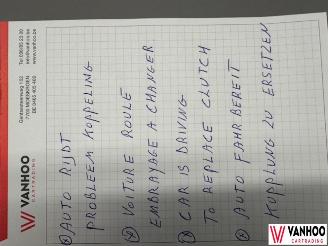 VANHOO
CARTRADING
Gentsesteenweg 102
BE 0465 405 480
Tel 056/65 23 00
www.vanhoo.be
AUTO RIJDT
PROBLEEM KOPPELING
VOITURE ROULE
EMBRAYAGE A CHANGER
CAR IS DRIVING
TO REPLACE CLUTCH
AUTO FAHRBEREIT
KUPPLUNG ZU ERSETZEN
VANHOO
CARTRADING